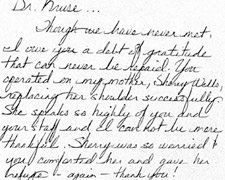 Dr. Kruse...
Though we have never met,
I owe you a debt of gratitude
that can never be repaid. You
operated on my mother, Sherry Wells,
replacing her shoulder successfully.
She speaks so highly of you and
your staff and I can not be more
thankful. Sherry was so worried &
you comforted her and gave her
refuge - again - thank you!